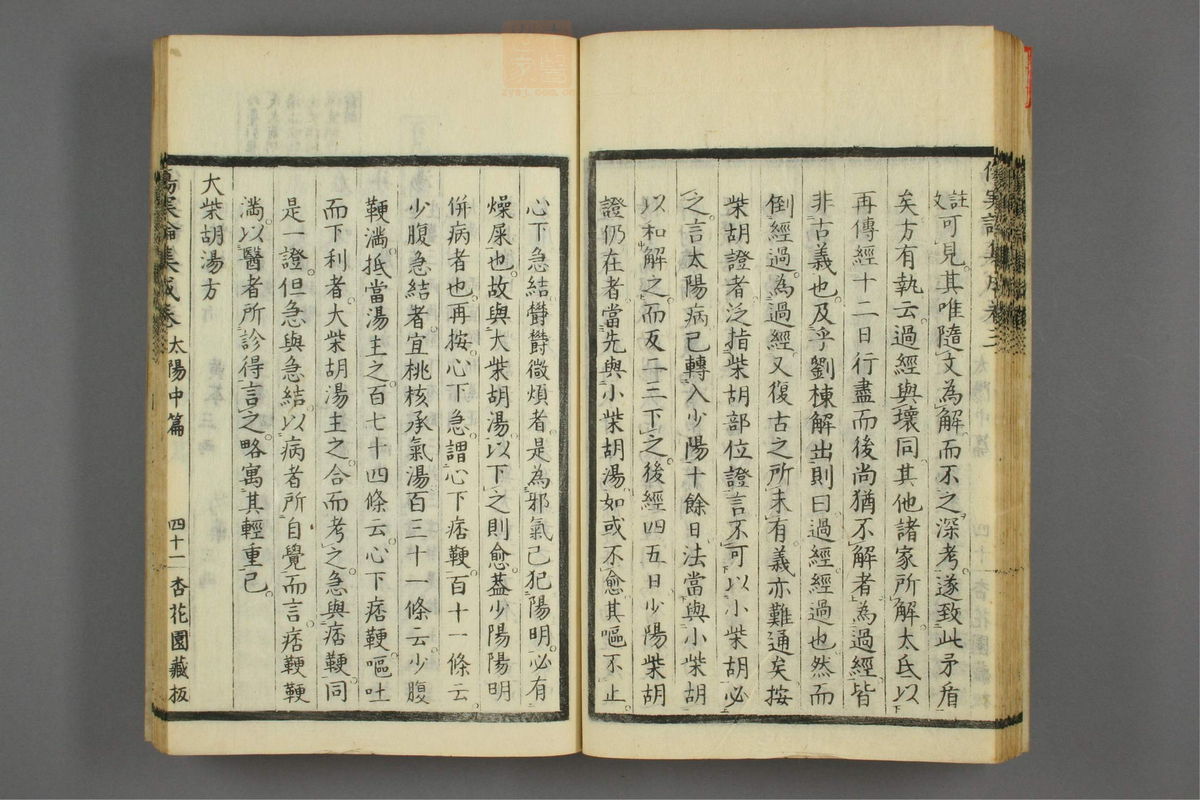 註可見其唯隨文為解而不之深考遂致此矛盾
矣方有執云過經與壞同其他諸家所解太氐以
再傳經十二日行盡而後尚猶不解者為過經皆
非古義也及乎劉棟解出則曰過經經過也然而
倒經過為過經又復古之所未有義亦難通矣按
柴胡證者泛指柴胡部位證言不可以小柴胡必
之言太陽病已轉入少陽十餘日法當與小柴胡
以和解之而反二三下之後經四五日少陽柴胡
證仍在者當先與小柴胡湯如或不愈其嘔不止
心下急結鬱鬱微煩者是為邪氣已犯陽明必有
燥屎也故與大柴胡湯以下之則愈蓋少陽陽明
併病者也再按心下急謂心下痞鞕百十一條云
少腹急結者宜桃核承氣湯百三十一條云少腹
鞕滿抵當湯主之百七十四條云心下痞鞕嘔吐
而下利者大柴胡湯主之合而考之急與痞鞕同
是一證但急與急結以病者所自覺而言痞鞕鞕
滿以醫者所診得言之略寓其輕重已
大柴胡湯方
傷寒論集成卷 太陽中篇 四十一 杏花園藏板